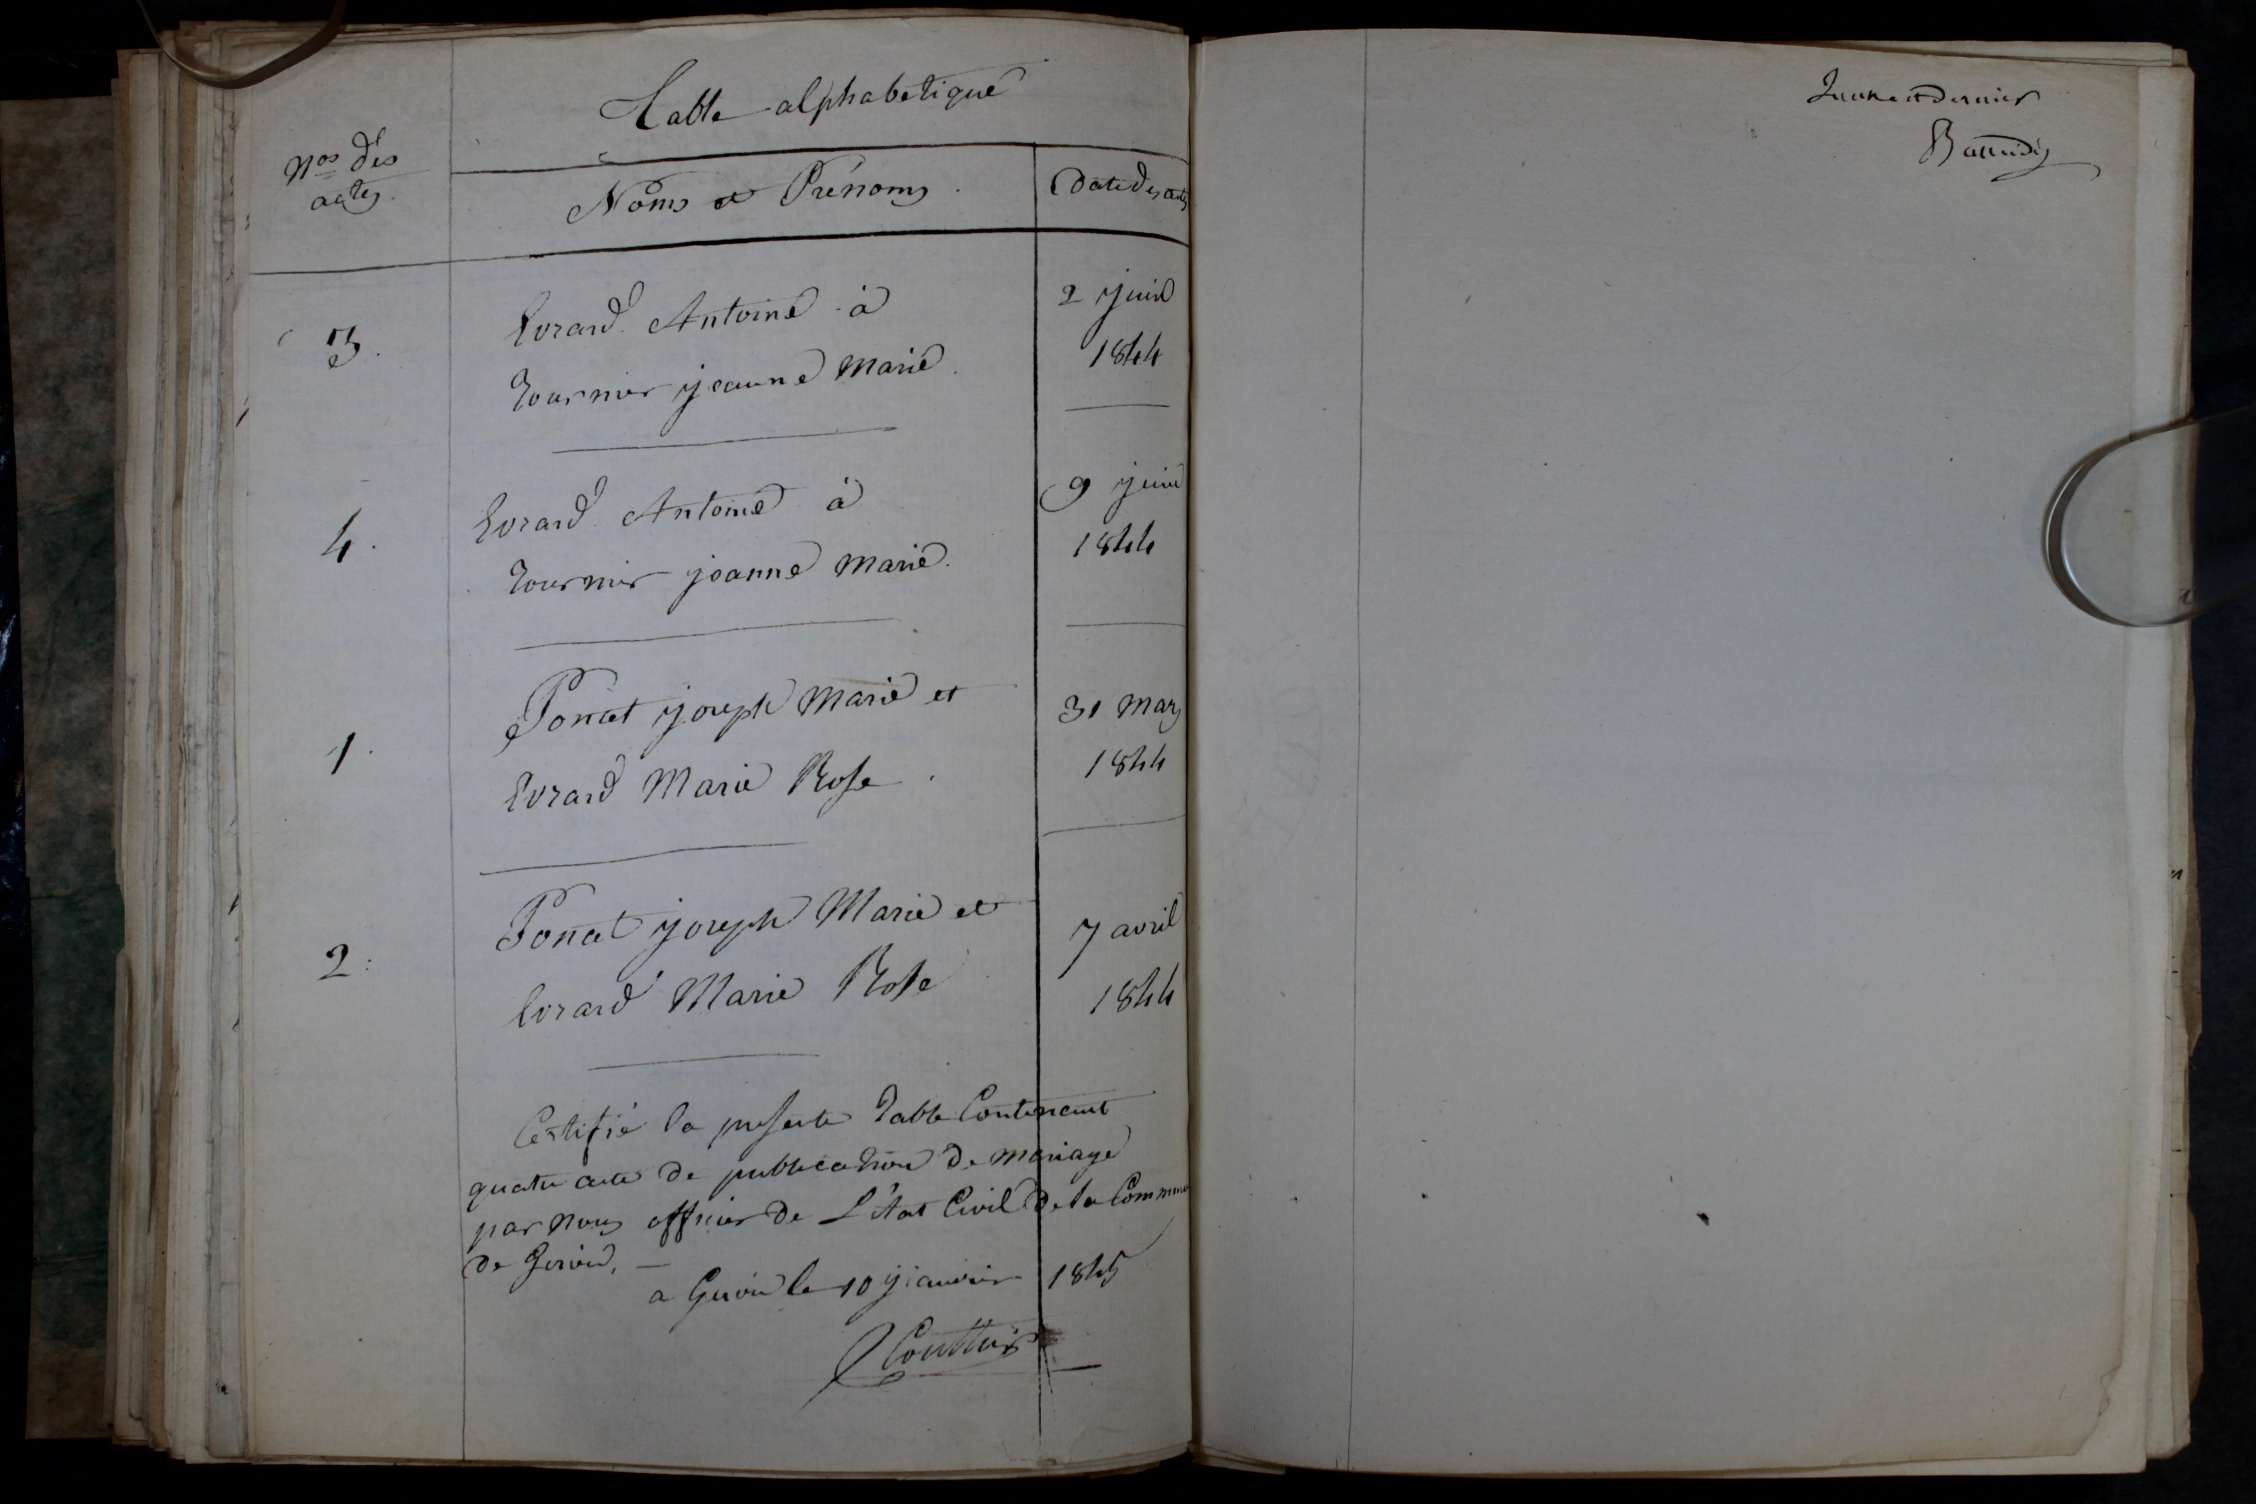 Table alphabetique
Nos des
actes.
Noms et Prénoms.
Date des actes
3.
Evrard Antoine à
2 juin
Tournier jeanne Marie.
1844
4.
Evrard Antoine à
9 juin
Tournier jeanne Marie.
1844
1.
Poncet joseph Marie et
31 Mars
Evrard Marie Rose.
1844
2.
Poncet joseph Marie et
7 avril
Evrard Marie Rose
1844
Certifié la presente Table Contenant
quatre acte de publication de mariage
par nous officier de L'état Civil de la Commune
de
a le 10 janvier 1845
et dernier